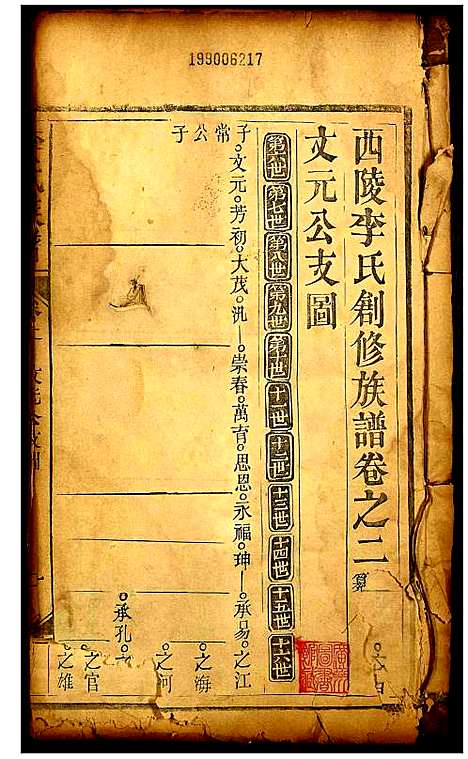 199006217
西陵李氏創修族譜卷之二
文元公支圖
第六世 第七世 第八世 第九世 第十世 十一世 十二世 十三世 十四世 十五世 十六世
子常公子
文元 芳初 大茂 汎 崇春 萬育 思恩 永福 珅 承易 之江
之海
之河
承孔
之官
之雄